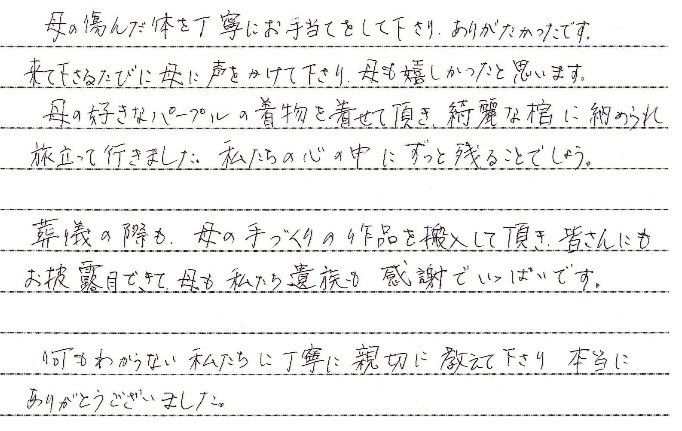 母の傷んだ体を丁寧にお手当てをして下さり、ありがたかったです。
来て下さるたびに母に声をかけて下さり、母も嬉しかったと思います。
母の好きなパープルの着物を着せて頂き、綺麗な棺に納められ
旅立って行きました。私たちの心の中にずっと残ることでしょう。
葬儀の際も、母の手づくりの作品を搬入して頂き、皆さんにも
お披露目できて、母も私たち遺族も感謝でいっぱいです。
何もわからない私たちに丁寧に親切に教えて下さり本当に
ありがとうございました。